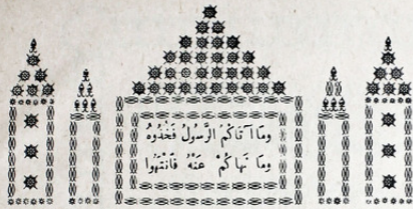 وما آتاكم الرَّسُولُ فَخُذُوهُ
وما نَهَاكُمْ عَنْهُ فَانْتَهُوا